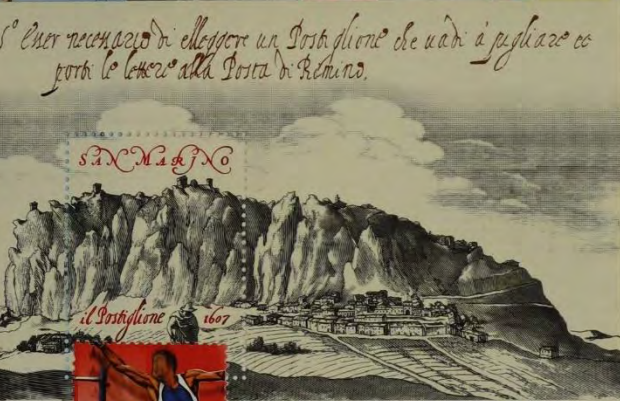 s.º Esser necessario di elleggere un Postiglione che uadi à pigliare et
porti le lettere alla Posta di Rimino.
SAN MARINO
il Postiglione 1607